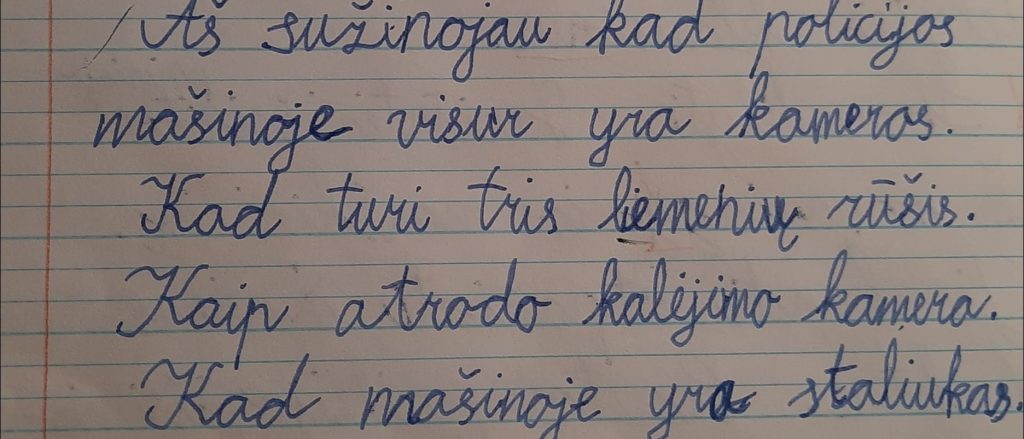 Aš sužinojau kad policijos
mašinoje visur yra kameros.
Kad turi tris liemenių rūšis.
Kaip atrodo kalėjimo kamera.
Kad mašinoje yra staliukas.